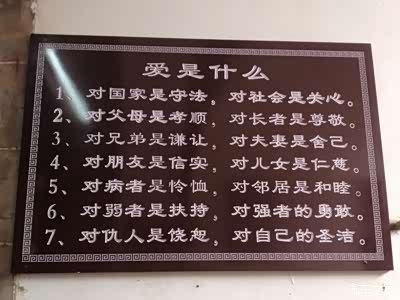 爱是什么
1、对国家是守法，对社会是关心。
2、对父母是孝顺，对长者是尊敬。
3、对兄弟是谦让，对夫妻是舍己。
4、对朋友是信实，对儿女是仁慈。
5、对病者是怜恤，对邻居是和睦。
6、对弱者是扶持，对强者的勇敢。
7、对仇人是饶恕，对自己的圣洁。